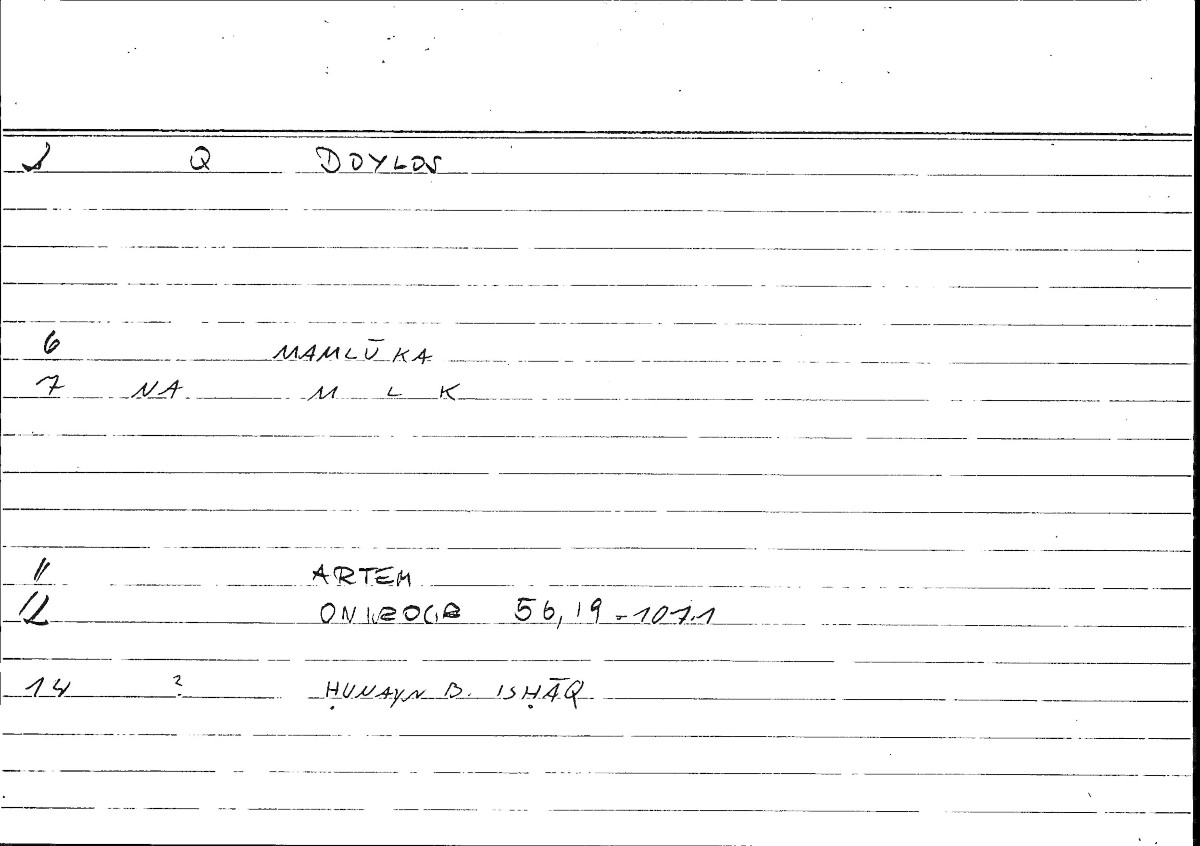 1 Q DOYLOS
6 MAMLŪKA
7 NA M L K
11 ARTEM
12 ONIROCR 56,19-107.1
14 ? ḤUNAYN B. ISḤĀQ